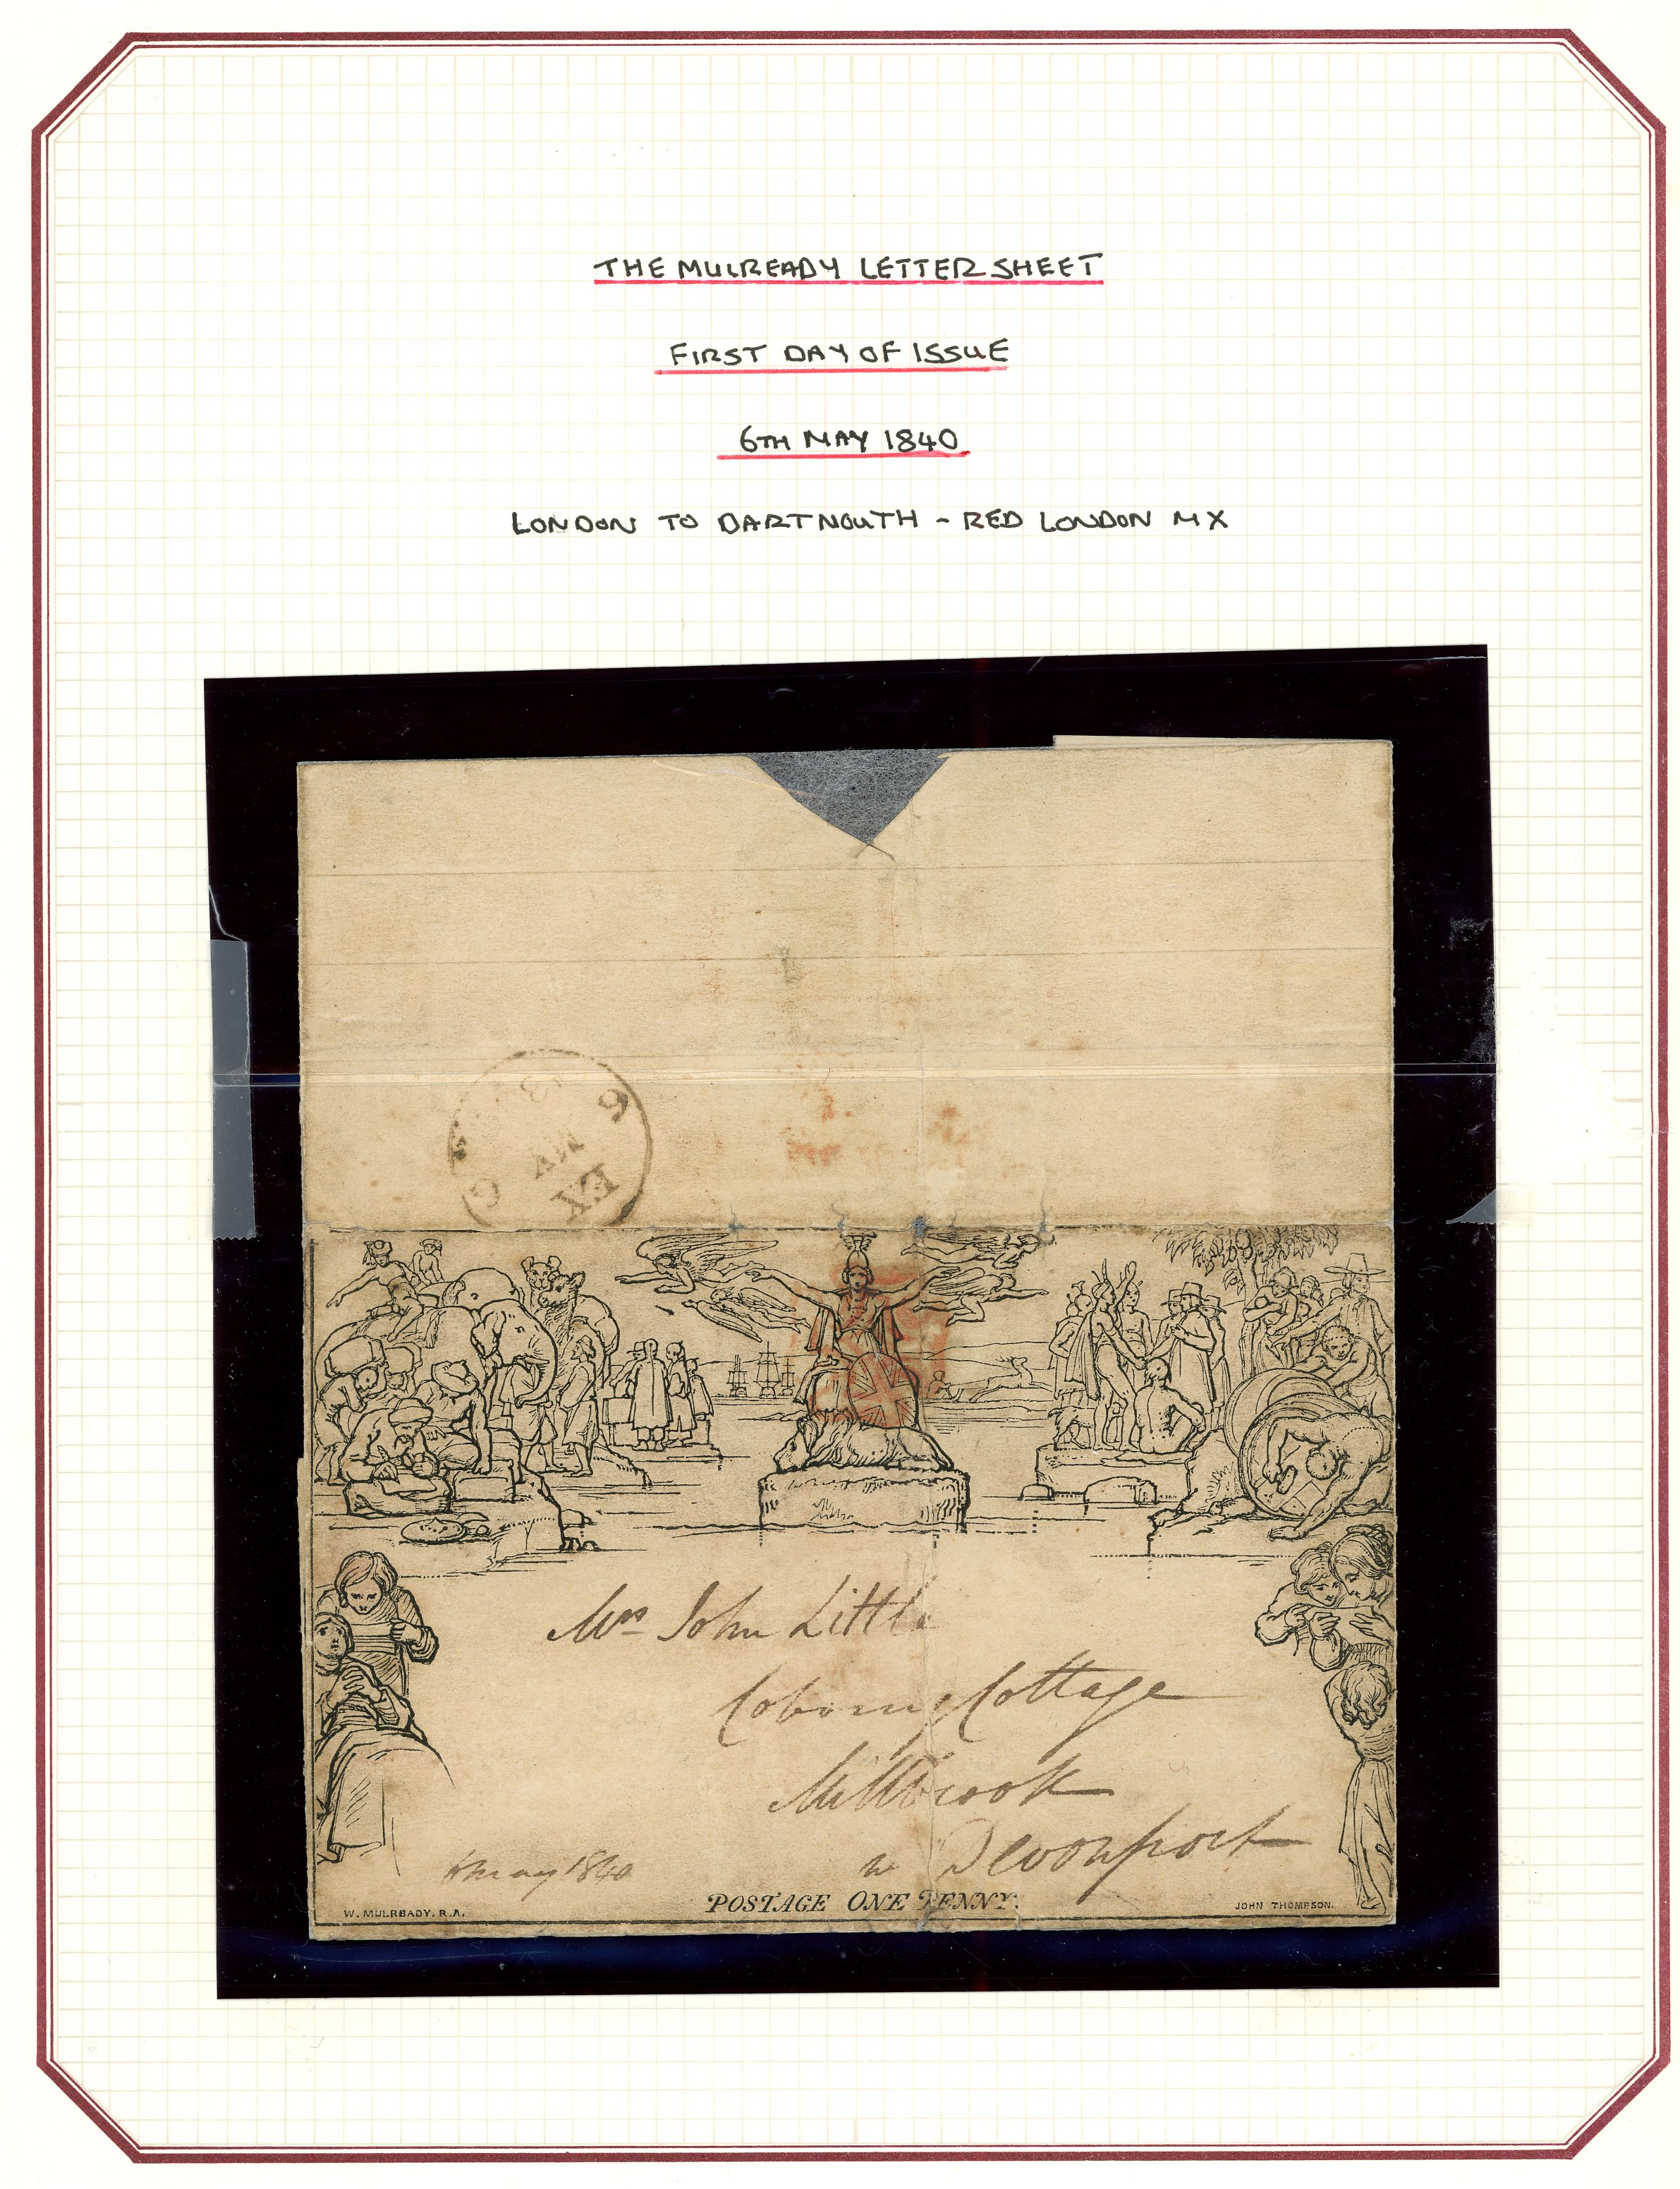 THE MULREADY LETTER SHEET
FIRST DAY OF ISSUE
6TH MAY 1840
LONDON TO DARTMOUTH - RED LONDON MX
EX
MY
6
Mrs John Little
Cottage
Millbrook
Devonport
6 May 1840
POSTAGE ONE PENNY.
W. MULREADY. R.A.
JOHN THOMPSON.